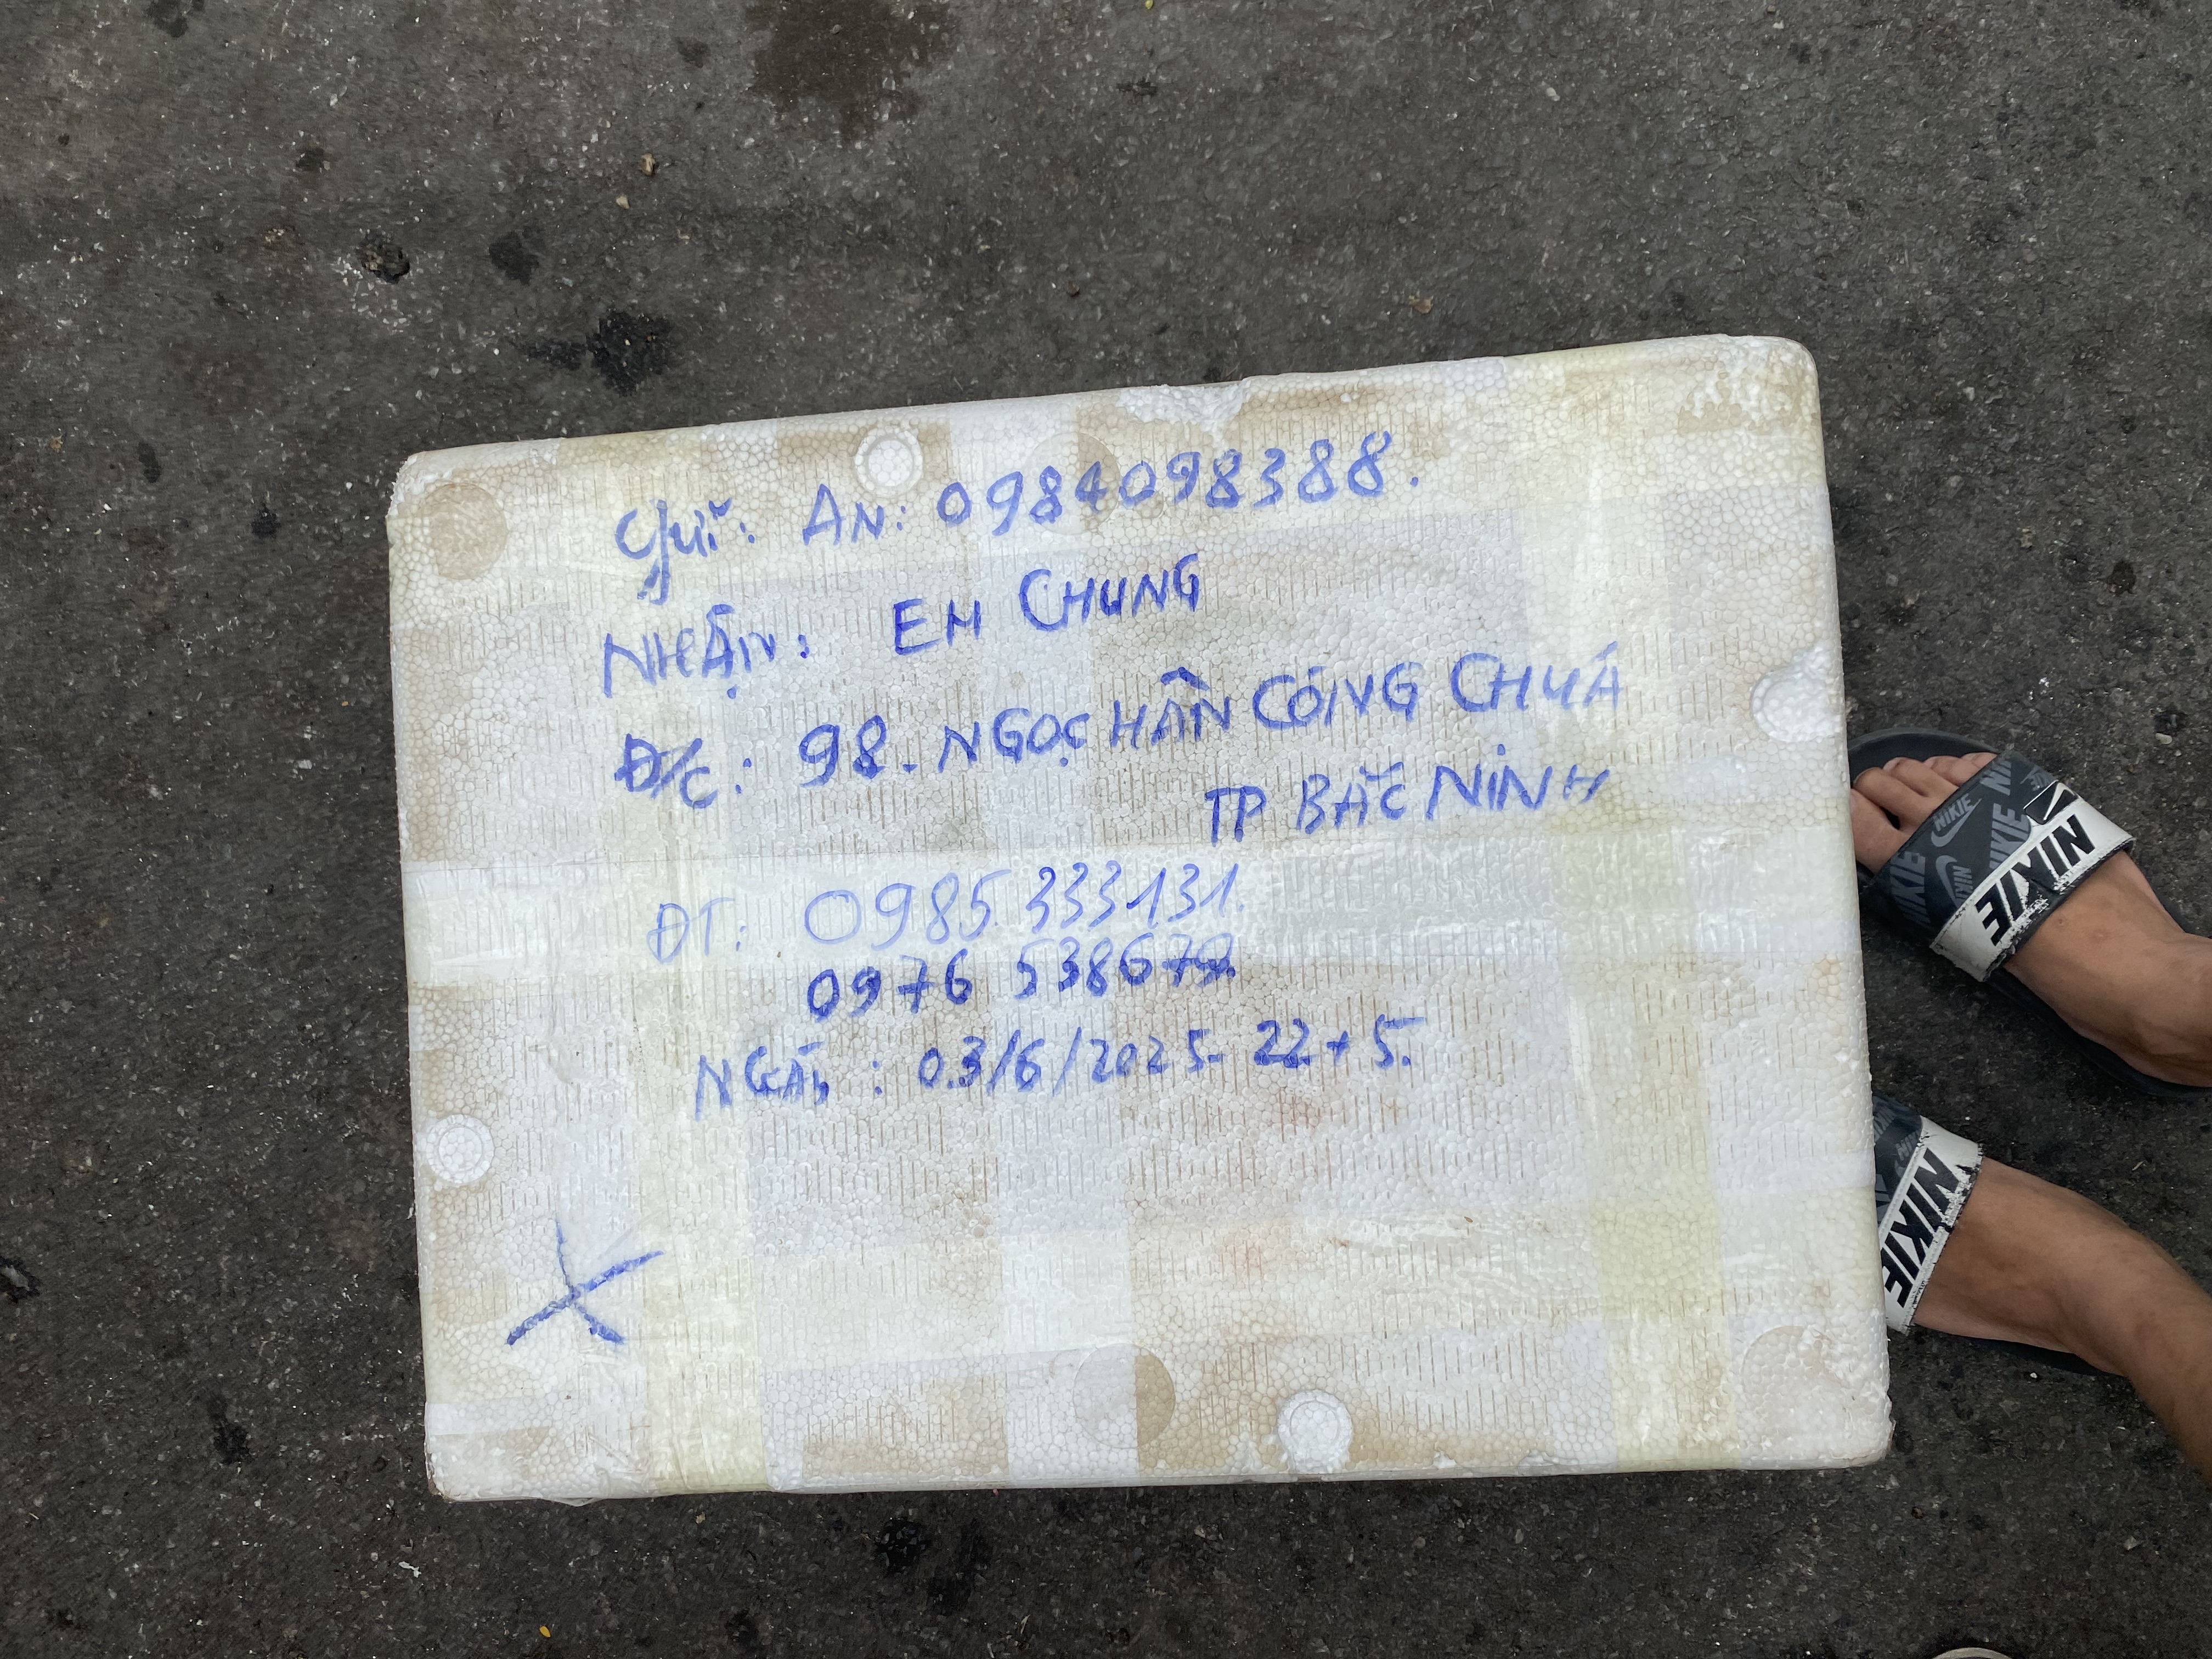 Gửi: AN: 0984098388.
NHẬN: EM CHUNG
Đ/C: 98. NGỌC HÂN CÔNG CHÚA
TP BẮC NINH
ĐT: 0985.333131.
0976 538679.
: 03/6/2025- 22 + 5.
NIKE
NIKE